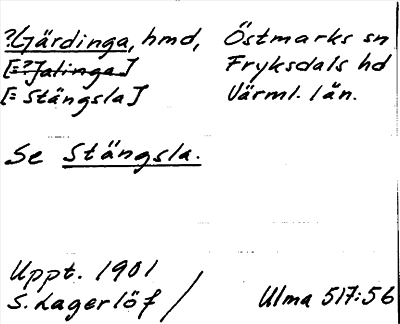 ?Gärdinga, hmd, Östmarks sn
[=?Jalinga.] Fryksdals hd
[= Stängsla] Värml. län.
Se Stängsla.
Uppt. 1901
S. Lagerlöf / Ulma 517:56